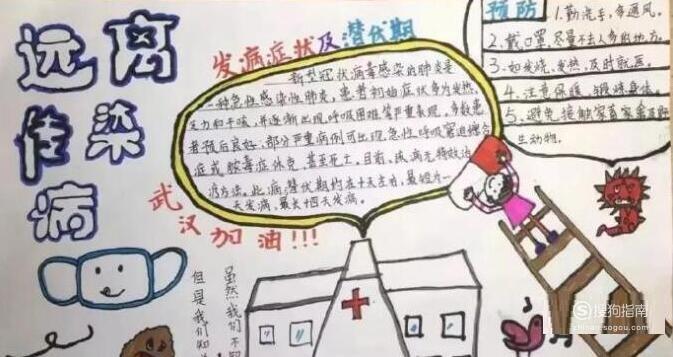 远离
传染
病
发病症状及潜伏期
新型冠状病毒感染的肺炎是
一种急性感染性肺炎，患者初始症状多为发热、
乏力和干咳，并逐渐出现呼吸困难等严重表现。多数患
者预后良好，部分严重病例可出现急性呼吸窘迫综合
症或脓毒症休克，甚至死亡。目前，该病无特效治
疗方法。此病潜伏期约在十天左右，最短为一
天发病，最长十四天发病。
预防
1.勤洗手，多通风。
2.戴口罩，尽量不去人多的地方。
3.如发烧、发热，及时就医。
4.注意保暖，锻炼身体。
5.避免接触家畜家禽及野
生动物。
武汉加油!!!
虽然我们不
但是我们知
搜狗指南
zhinan.sogou.com